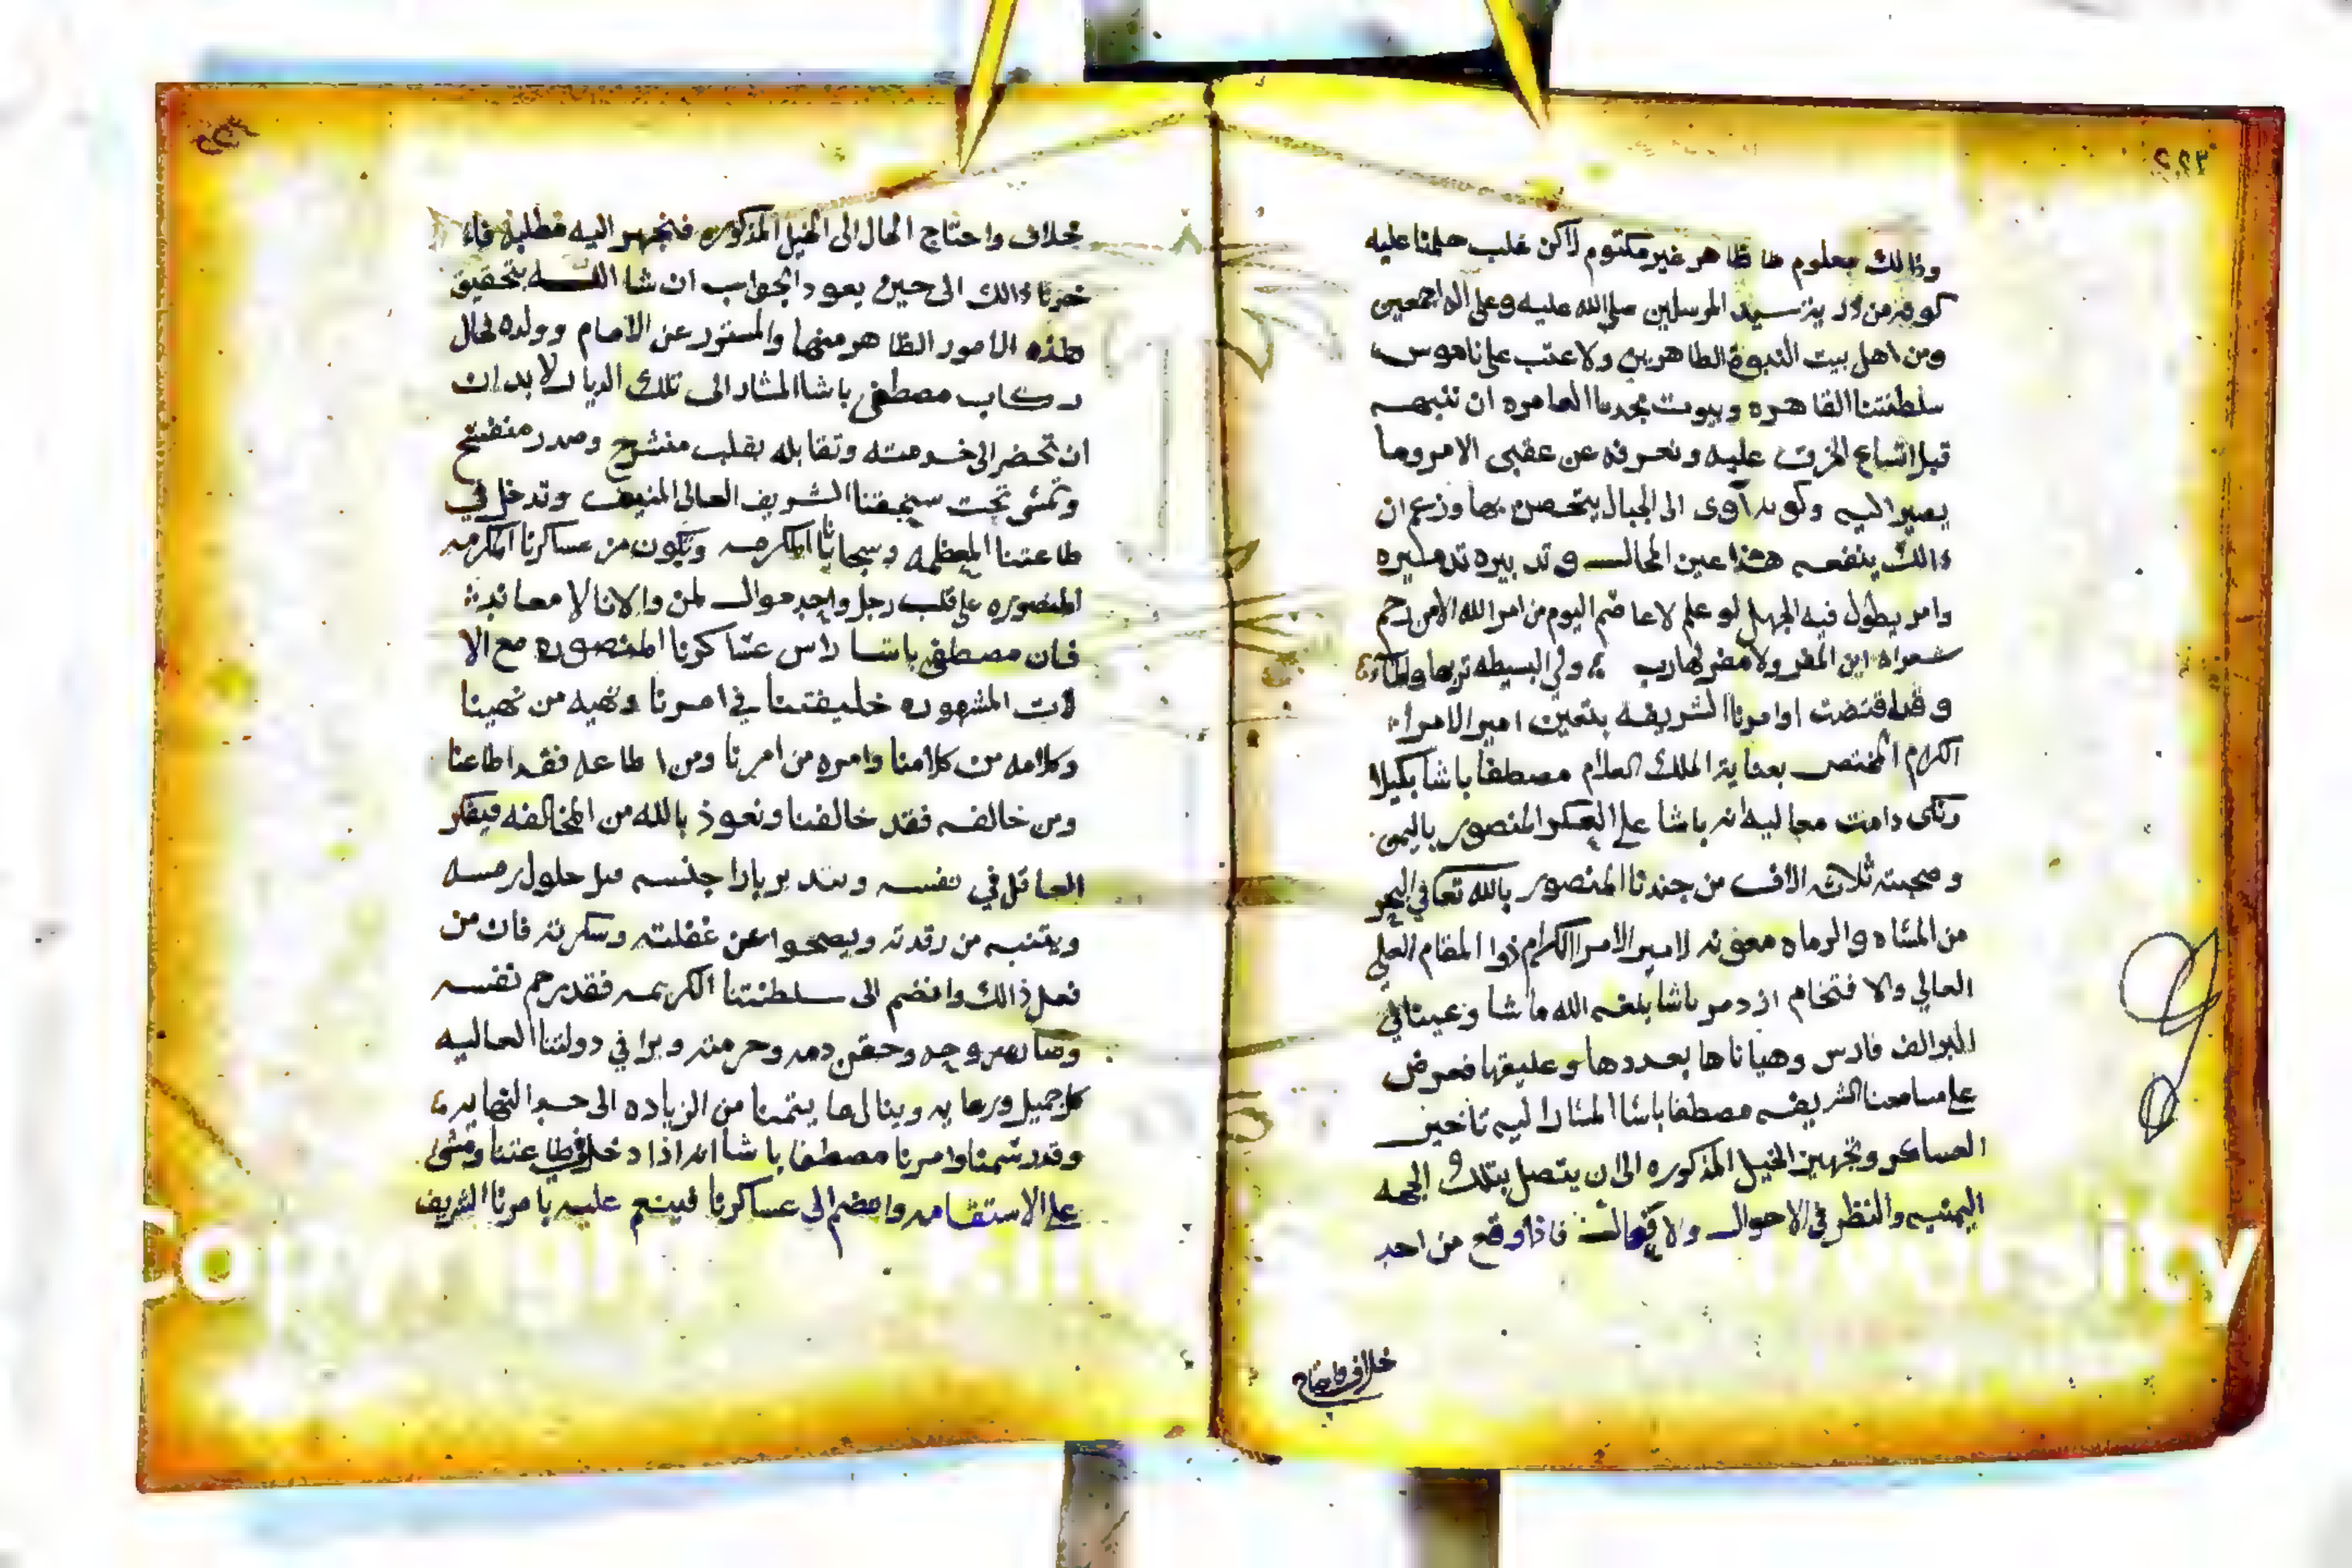 ٢٢٣
وذالك معلوم ظاهر غير مكتوم لاكن غلب حلمنا عليه
كونه من ذرية سيد المرسلين صلى الله عليه وعلى اله اجمعين
ومن اهل بيت النبوة الطاهرين ولا عتب على ناموس
سلطنتنا القاهره وبيوت مجدنا العامره ان ننبهه
قبل اتساع الخرق عليه ونعرفه عن عقبى الامر وما
يصير اليه وكونه آوى الى الجبال يتحصن بها وزعم ان
ذالك ينفعه هذا عين المحال وتدبيره تدميره
وامر يطول فيه الجهل لو علم لا عاصم اليوم من امر الله الا من رحم
شعراه اين المفر ولا مفر لهارب ولي البسيطه تربها والماء
وقد اقتضت اوامرنا الشريفه بتعين امير الامراء
الكرام المختص بعناية الملك العلام مصطفا باشا بكيلا
ربكى دامت معاليه انه باشا على العسكر المنصور باليمن
وصحبته ثلاثه الاف من جندنا المنصور بالله تعا في البحر
من المشاه والرماه معونه لامير الامرا الكرام ذوا المقام العلي
العالي والافتخام ازدمر باشا بلغه الله ما شا وعينا في
البر الف فارس وهيأناها بعددها وعليقها فعرض
على مسامعنا الشريفه مصطفا باشا المشار اليه تاخير
العساكر وتجهيز الخيل المذكوره الى ان يتصل بتلك الجهه
اليمنيه والنظر في الاحوال فاذا وقع من احد
خلاف واحتاج
خلاف واحتاج الحال الى الخيل المذكوره فنجهز اليه مطلبه فا
خرنا ذالك الى حين يعود الجواب ان شا الله بتحقيق
هذه الامور الظاهر منها والمستور عن الامام وولده لحال
ركاب مصطفى باشا المشار الى تلك الديار لا بد ان
ان تحضر الى خدمته وتقابله بقلب منشرح وصدر منفتح
وتمشى تحت سنجقنا الشريف العالى المنيف وتدخل في
طاعتنا المعظمه وسجايانا المكرمه وتكون من عساكرنا المكرمه
المنصوره على قلب رجل واحد موال لمن والانا لا معاند
فان مصطفى باشا راس عساكرنا المنصوره مع الا
لات المشهوره خليفتنا في امرنا ونهيه من نهينا
وكلامه من كلامنا وامره من امرنا ومن اطاعه فقد اطاعنا
ومن خالفه فقد خالفنا ونعوذ بالله من المخالفه فيفكر
العاقل في نفسه قبل حلول رمسه
ويتنبه من رقدته ويصحوا عن غفلته وسكرته فان من
فعل ذالك وانضم الى سلطنتنا الكريمه فقد رحم نفسه
وحقن دمه وحرمته ويرا في دولتنا العاليه
كل جميل ورعايه وينال ما يتمنا من الزياده الى حد النهايه
وقد رسمنا وامرنا مصطفا باشا انه اذا دخل في طاعتنا ومشى
على الاستقامه وانضم الى عساكرنا فينعم عليه بامرنا الشريف